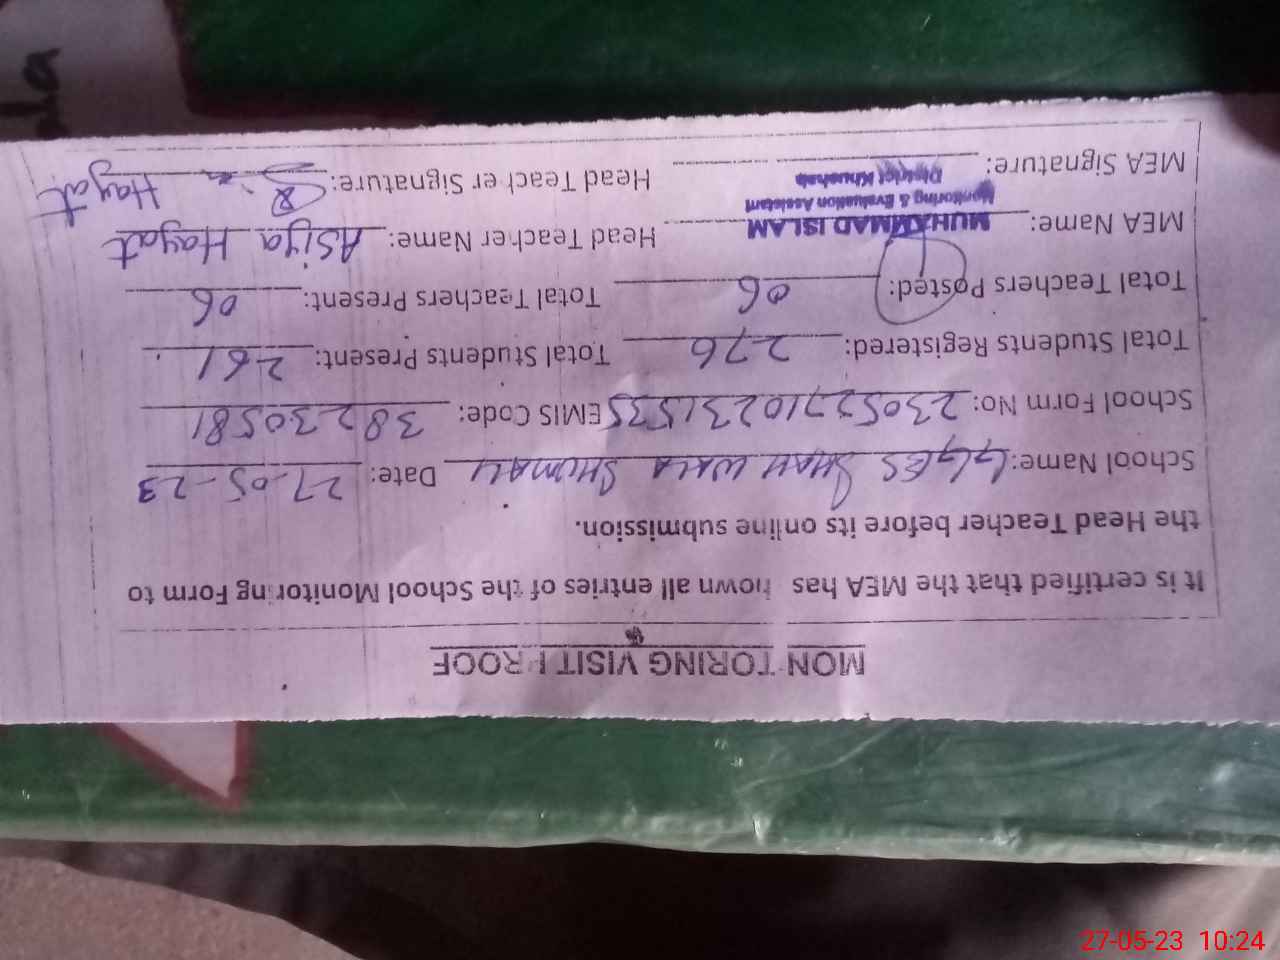 MONITORING VISIT PROOF
It is certified that the MEA has shown all entries of the School Monitoring Form to
the Head Teacher before its online submission.
School Name: GGES SHAH WALA SHUMALI Date: 27-05-23
School Form No: 23052710231535 EMIS Code: 38230581
Total Students Registered: 276 Total Students Present: 261
Total Teachers Posted: 06 Total Teachers Present: 06
MEA Name: MUHAMMAD ISLAM Head Teacher Name: Asiya Hayat
Monitoring & Evaluation Assistant
District Khushab
MEA Signature: Head Teacher Signature: Hayat
27-05-23 10:24